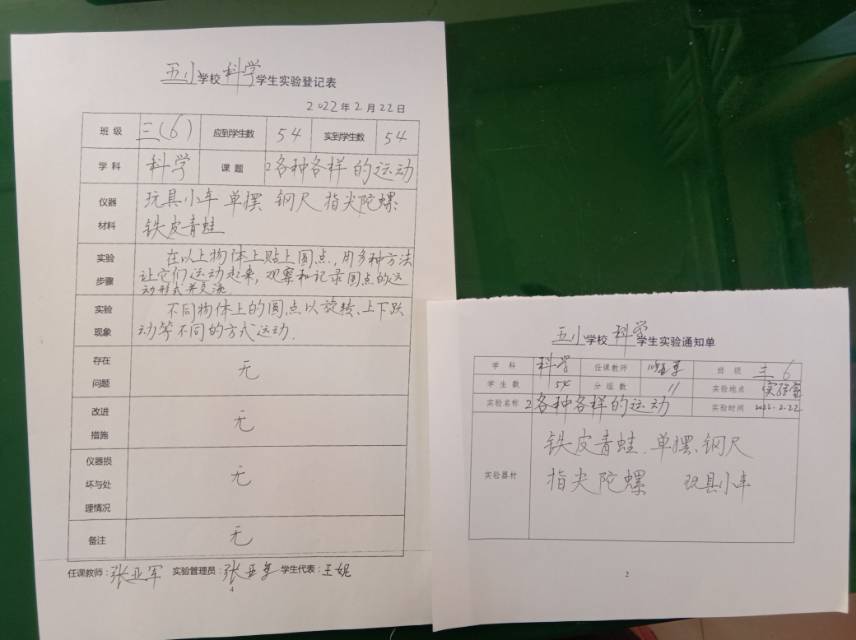 五小学校科学学生实验登记表
2022年2月22日
班级 三(6) 应到学生数 54 实到学生数 54
学科 科学 课题 2各种各样的运动
仪器材料 玩具小车 单摆 钢尺 指尖陀螺
铁皮青蛙
实验步骤 在以上物体上贴上圆点,用多种方法
让它们运动起来,观察和记录圆点的运
动形式并交流
实验现象 不同物体上的圆点以旋转、上下跌
动等不同的方式运动.
存在问题 无
改进措施 无
仪器损坏与处理情况 无
备注 无
任课教师:张亚军 实验管理员:张亚军 学生代表:王妮
4
五小学校科学学生实验通知单
学科 科学 任课教师 班级 三6
学生数 54 分组数 11 实验地点 实验室
实验名称 2各种各样的运动 实验时间 2022.2.22
实验器材 铁皮青蛙、单摆、钢尺
指尖陀螺 玩具小车
2